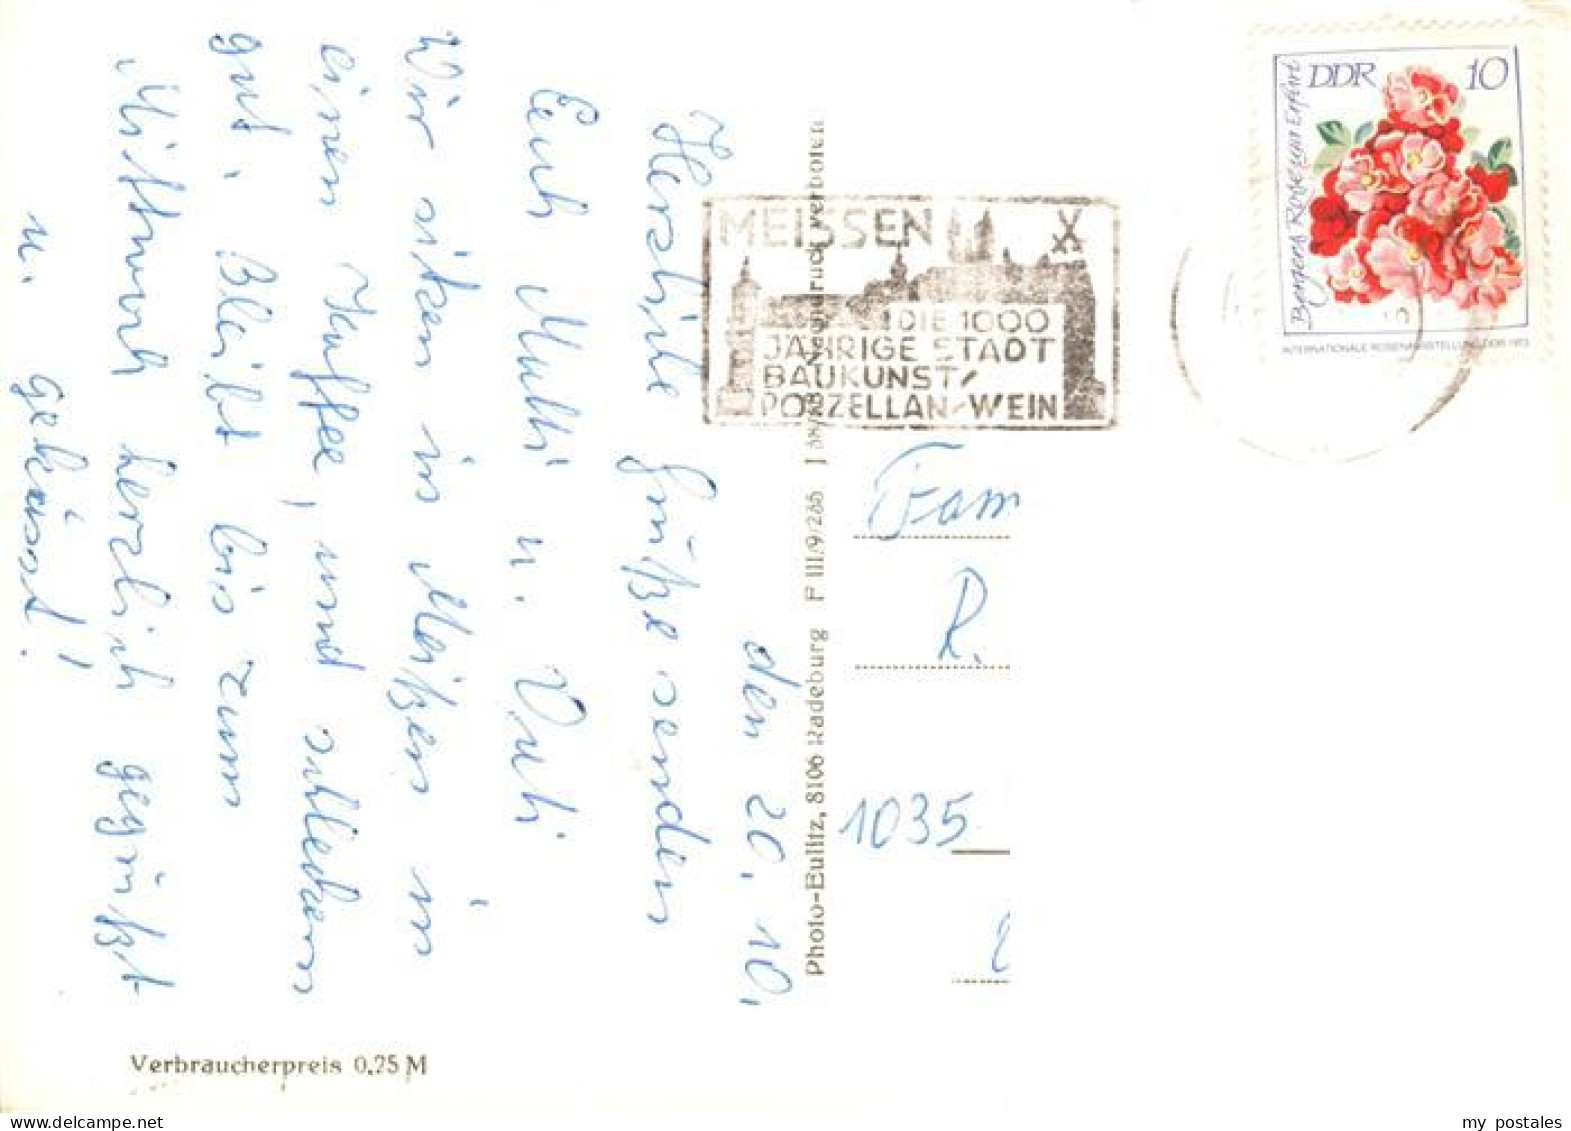 den 20.10.
Herzliche Grüße senden
Euch Mutti u. Vati
Wir sitzen in Meißen in
einem Kaffee, und schlecken
gut. Bleibt bis zum
Mittwoch herzlich gegrüßt
u. geküsst!
Verbraucherpreis 0,25 M
Photo-Eulitz, 8106 Radeburg F III/9/286 J 38/ Nachdruck verboten
MEISSEN
DIE 1000
JÄHRIGE STADT
BAUKUNST/
PORZELLAN/WEIN
DDR 10
Bergers Rose aus Erfurt
INTERNATIONALE ROSENAUSSTELLUNG DDR 1972
Fam
R.
1035